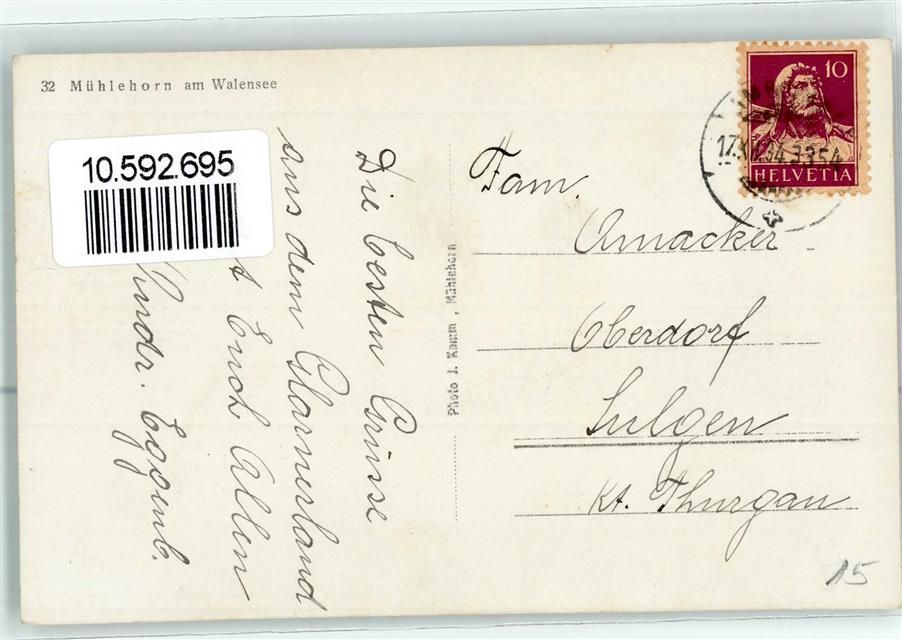 32 Mühlehorn am Walensee
10.592.695
Die besten Grüsse
aus dem Glarnerland
Euch Allen
Photo J. Kamm, Mühlehorn
10
HELVETIA
Fam.
Amacker
Oberdorf
Sulgen
Kt. Thurgau
15